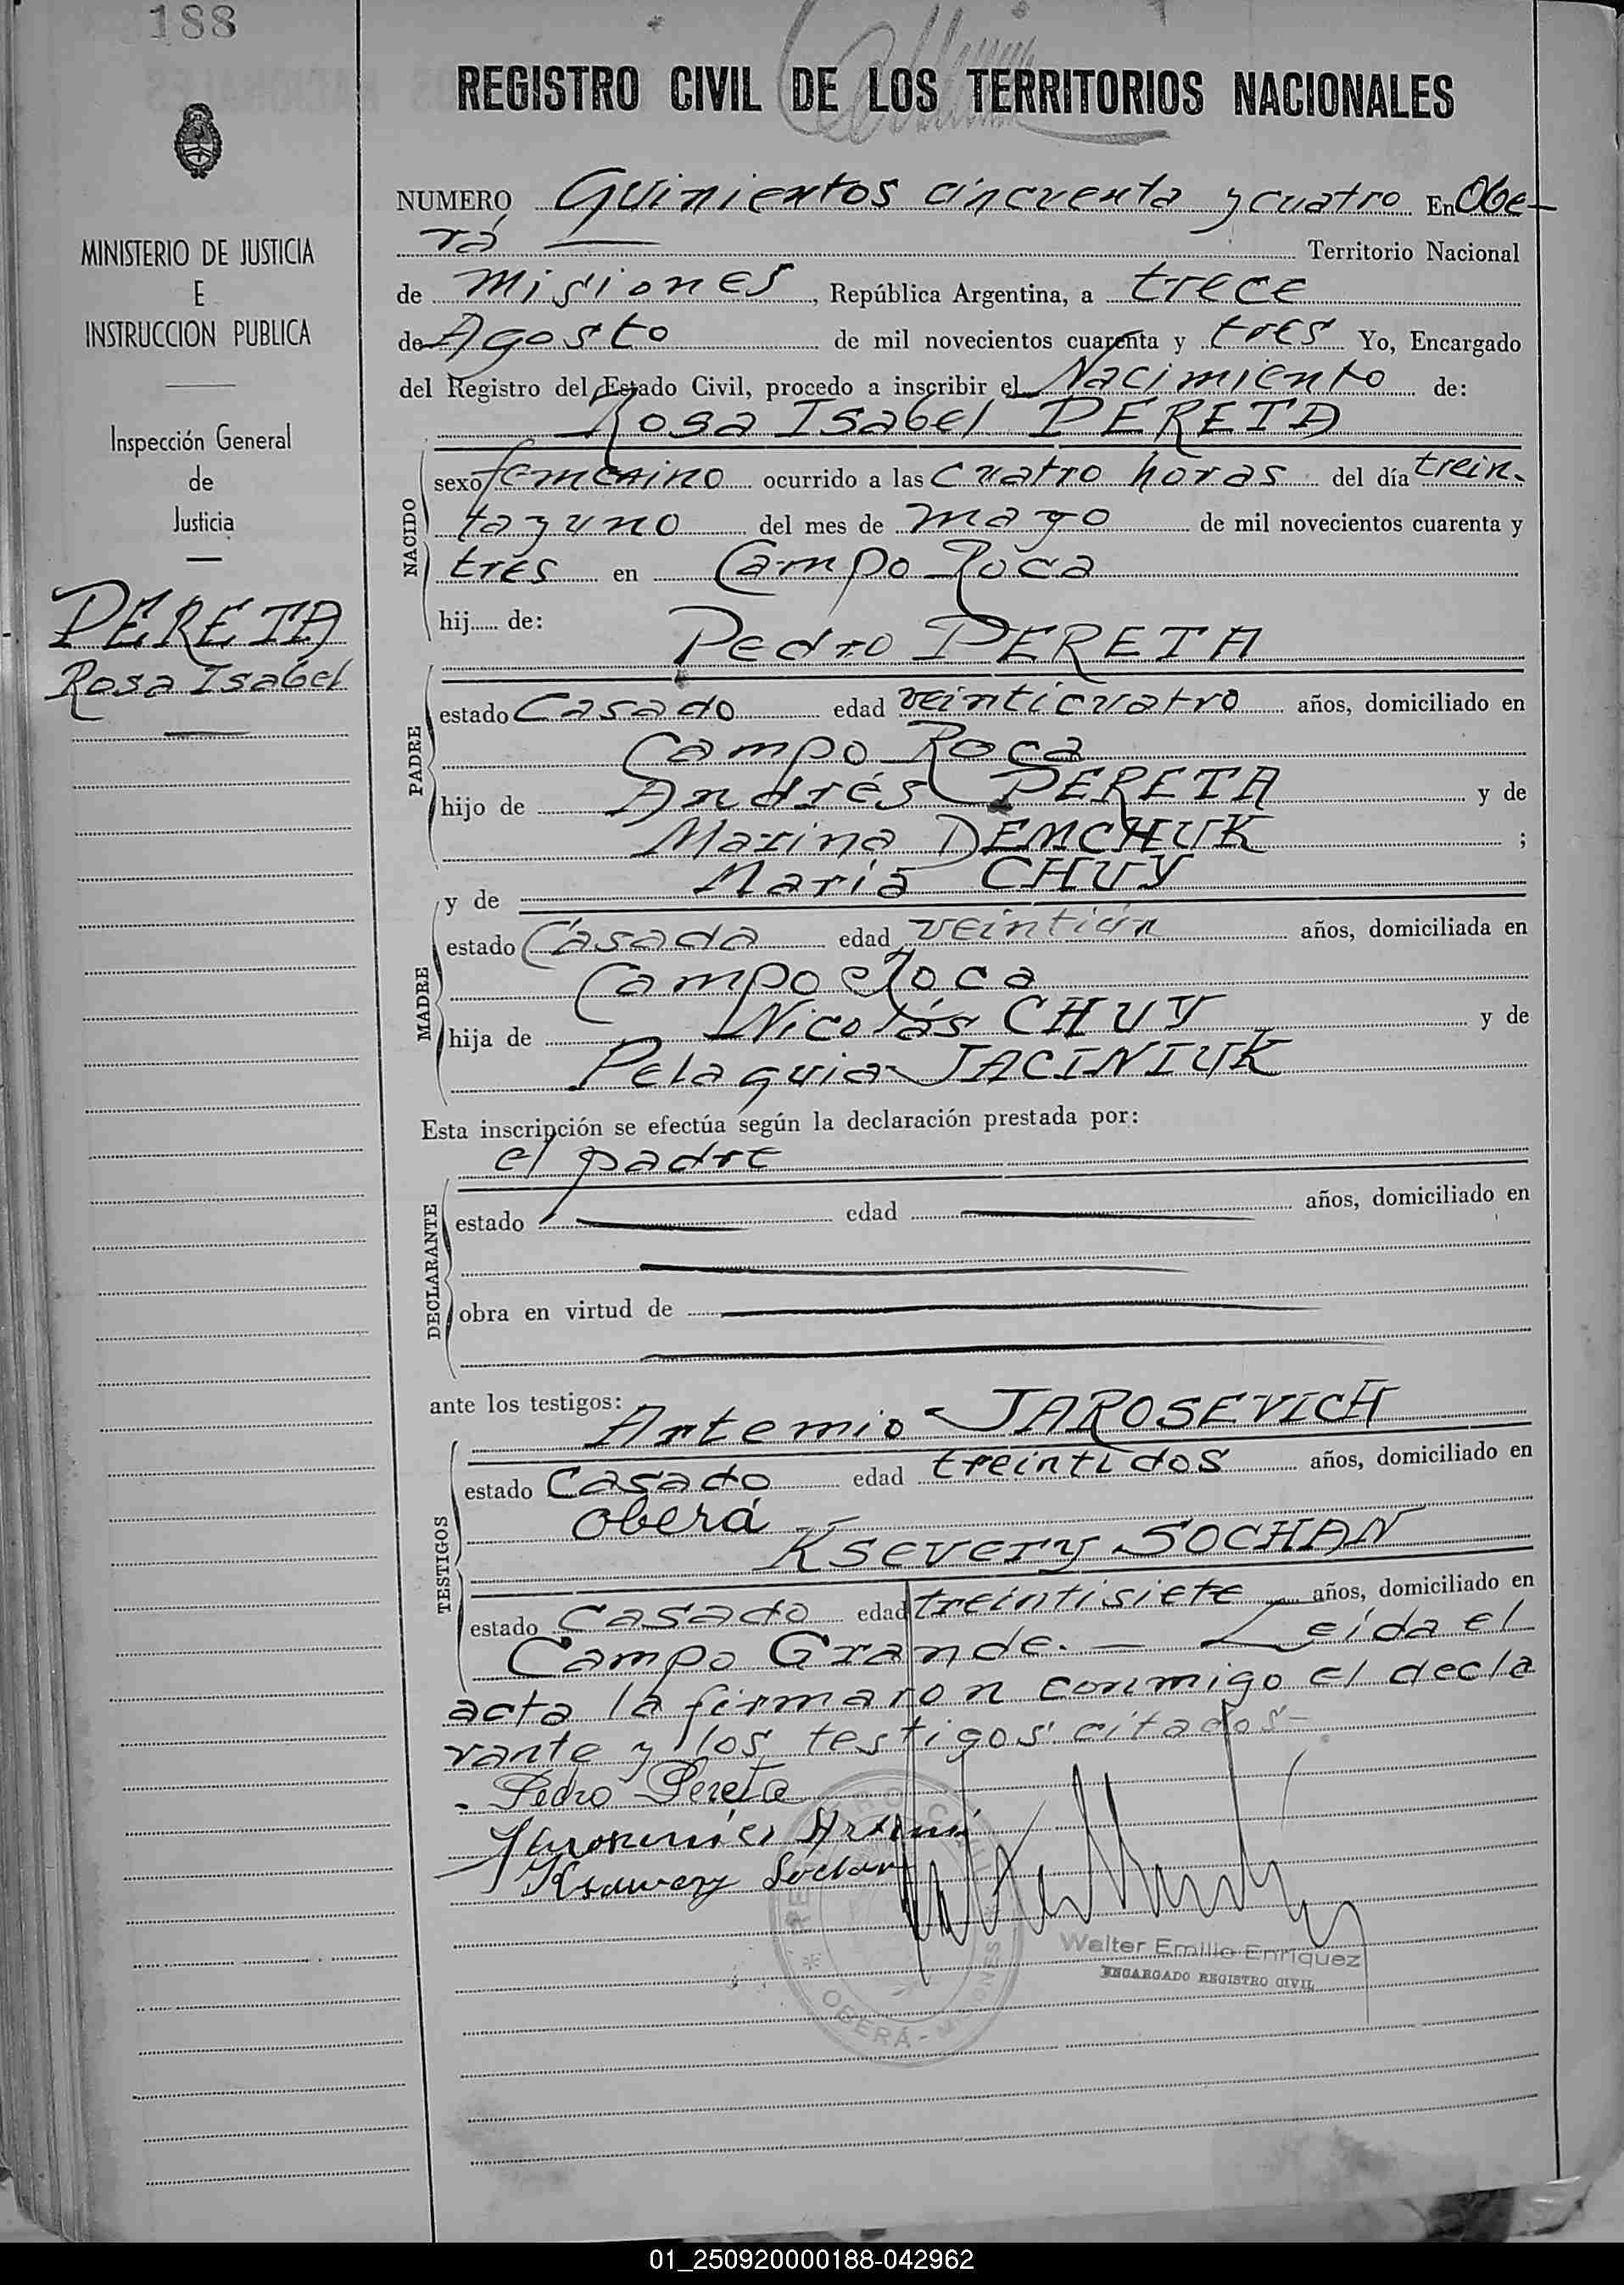 188
REGISTRO CIVIL DE LOS TERRITORIOS NACIONALES
MINISTERIO DE JUSTICIA
E
INSTRUCCION PUBLICA
Inspección General
de
Justicia
PERETA
Rosa Isabel
NUMERO Quinientos cincuenta y cuatro En Obe-
rá Territorio Nacional
de Misiones, República Argentina, a trece
de Agosto de mil novecientos cuarenta y tres Yo, Encargado
del Registro del Estado Civil, procedo a inscribir el Nacimiento de:
Rosa Isabel PERETA
NACIDO
sexo femenino ocurrido a las cuatro horas del día trein-
tayuno del mes de mayo de mil novecientos cuarenta y
tres en Campo Roca
hij...... de:
Pedro PERETA
PADRE
estado Casado edad veinticuatro años, domiciliado en
Campo Roca
hijo de Andrés PERETA y de
Marina DEMCHUK ;
y de María CHUY
MADRE
estado Casada edad veintiún años, domiciliada en
Campo Roca
hija de Nicolás CHUY y de
Pelaguia JACINIUK
Esta inscripción se efectúa según la declaración prestada por:
el padre
DECLARANTE
estado edad años, domiciliado en
obra en virtud de
ante los testigos:
Artemio JAROSEVICH
TESTIGOS
estado Casado edad treintidos años, domiciliado en
Oberá
Ksevery SOCHAN
estado Casado edad treintisiete años, domiciliado en
Campo Grande.- Leída el
acta la firmaron conmigo el decla
rante y los testigos citados-
Pedro Pereta
Ksawery Sochan
OBERÁ - MISIONES
Walter Emilio Enriquez
ENCARGADO REGISTRO CIVIL
01_250920000188-042962